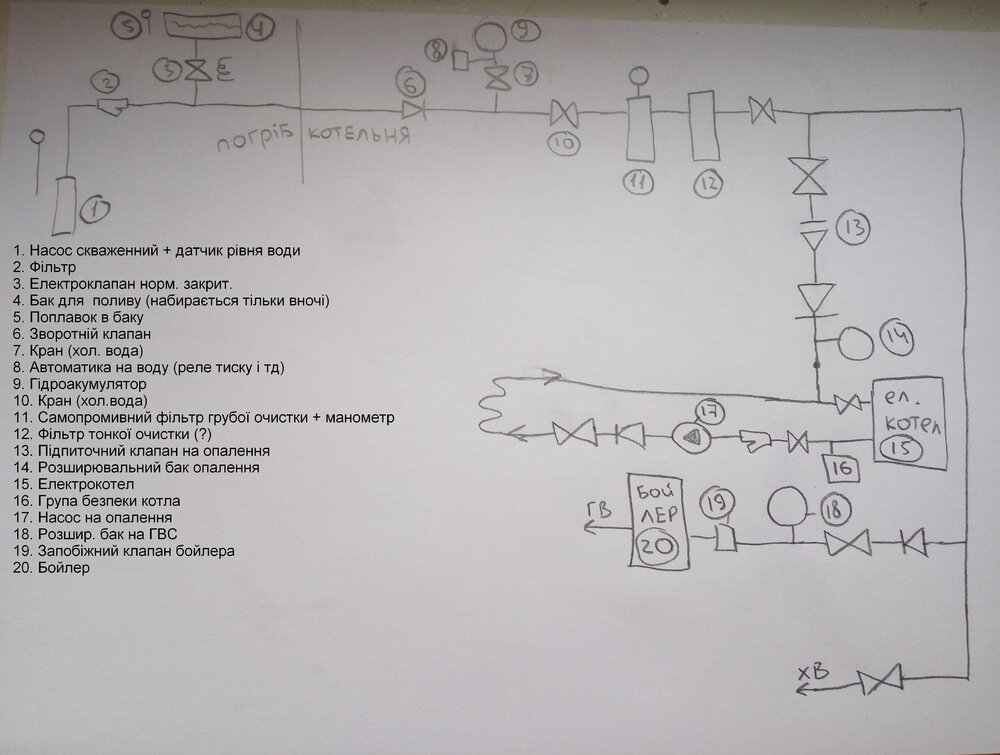 5
4
3
2
6
8
9
7
погріб котельня
10
11
12
1
13
14
1. Насос скваженний + датчик рівня води
2. Фільтр
3. Електроклапан норм. закрит.
4. Бак для  поливу (набирається тільки вночі)
5. Поплавок в баку
6. Зворотній клапан
7. Кран (хол. вода)
8. Автоматика на воду (реле тиску і тд)
9. Гідроакумулятор
10. Кран (хол.вода)
11. Самопромивний фільтр грубої очистки + манометр
12. Фільтр тонкої очистки (?)
13. Підпиточний клапан на опалення
14. Розширювальний бак опалення
15. Електрокотел
16. Група безпеки котла
17. Насос на опалення
18. Розшир. бак на ГВС
19. Запобіжний клапан бойлера
20. Бойлер
ел.
котел
15
17
16
ГВ
БОЙ
ЛЕР
20
19
18
ХВ